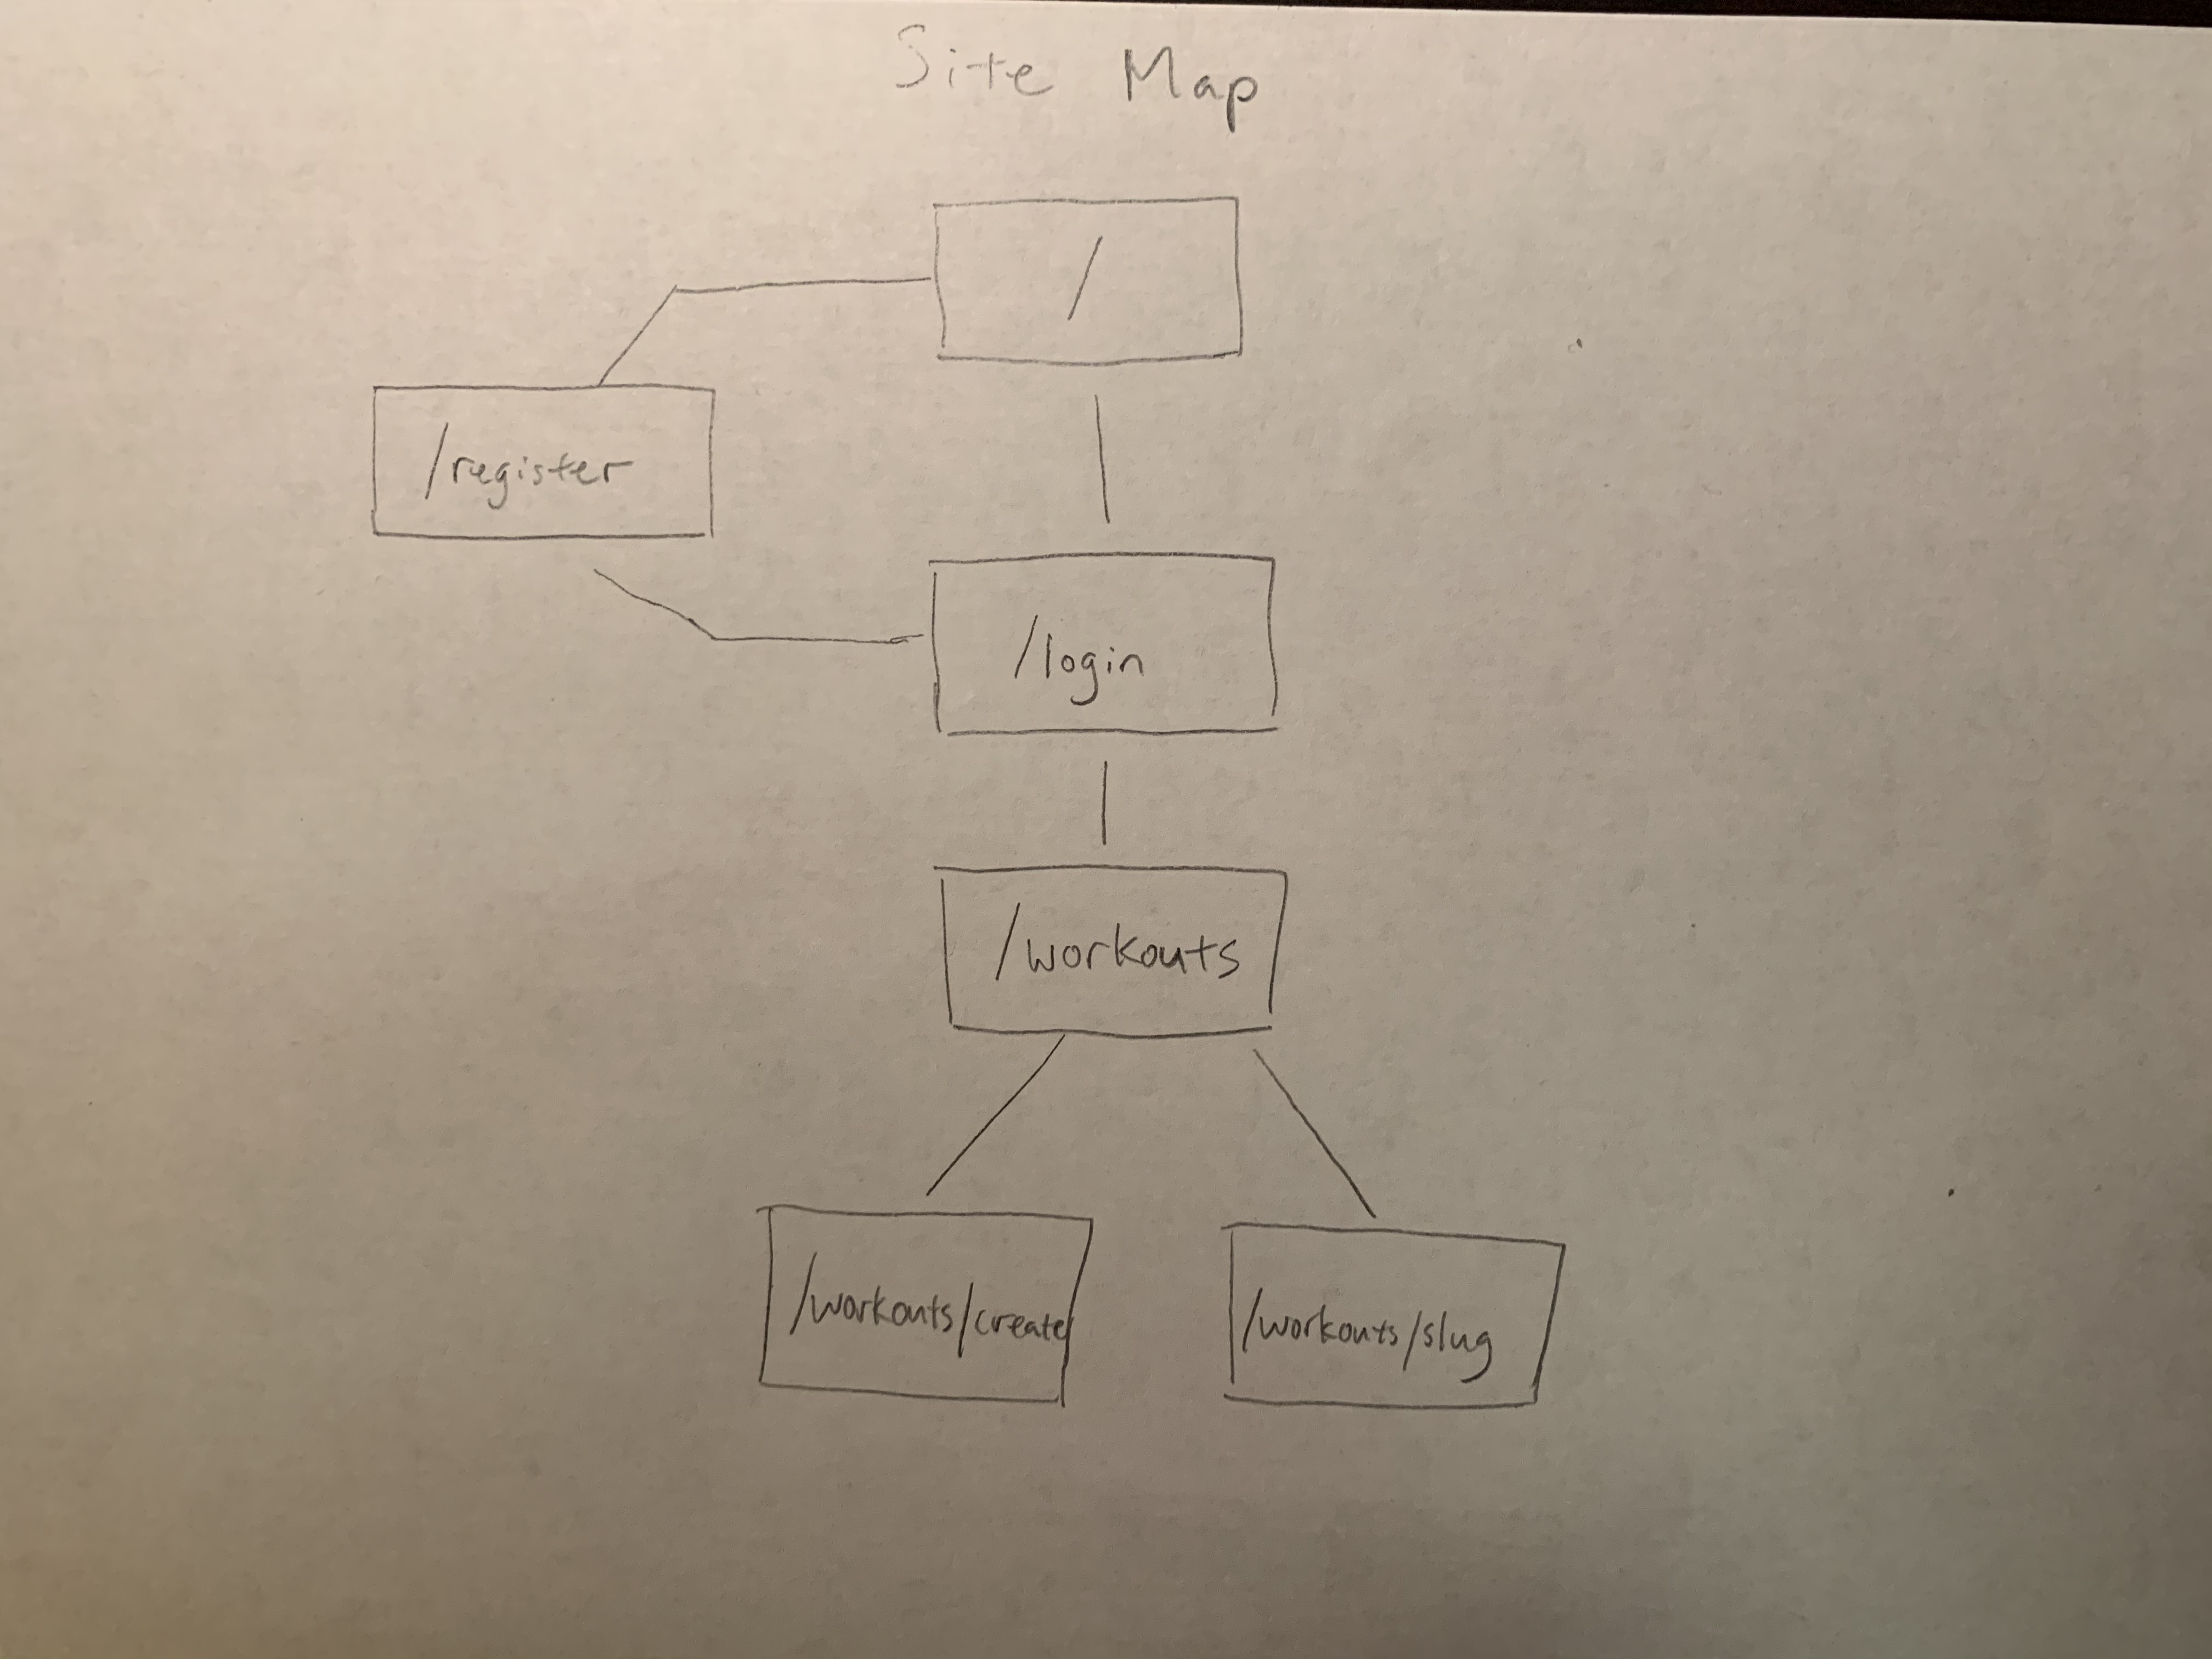 Site Map
/
/register
/login
/workouts
/workouts/create
/workouts/slug